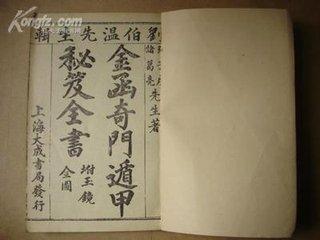 Kongfz.com
劉伯溫先生輯
諸葛亮先生著
金函奇門遁甲
秘笈全書
坿玉鏡
全圖
上海大成書局發行